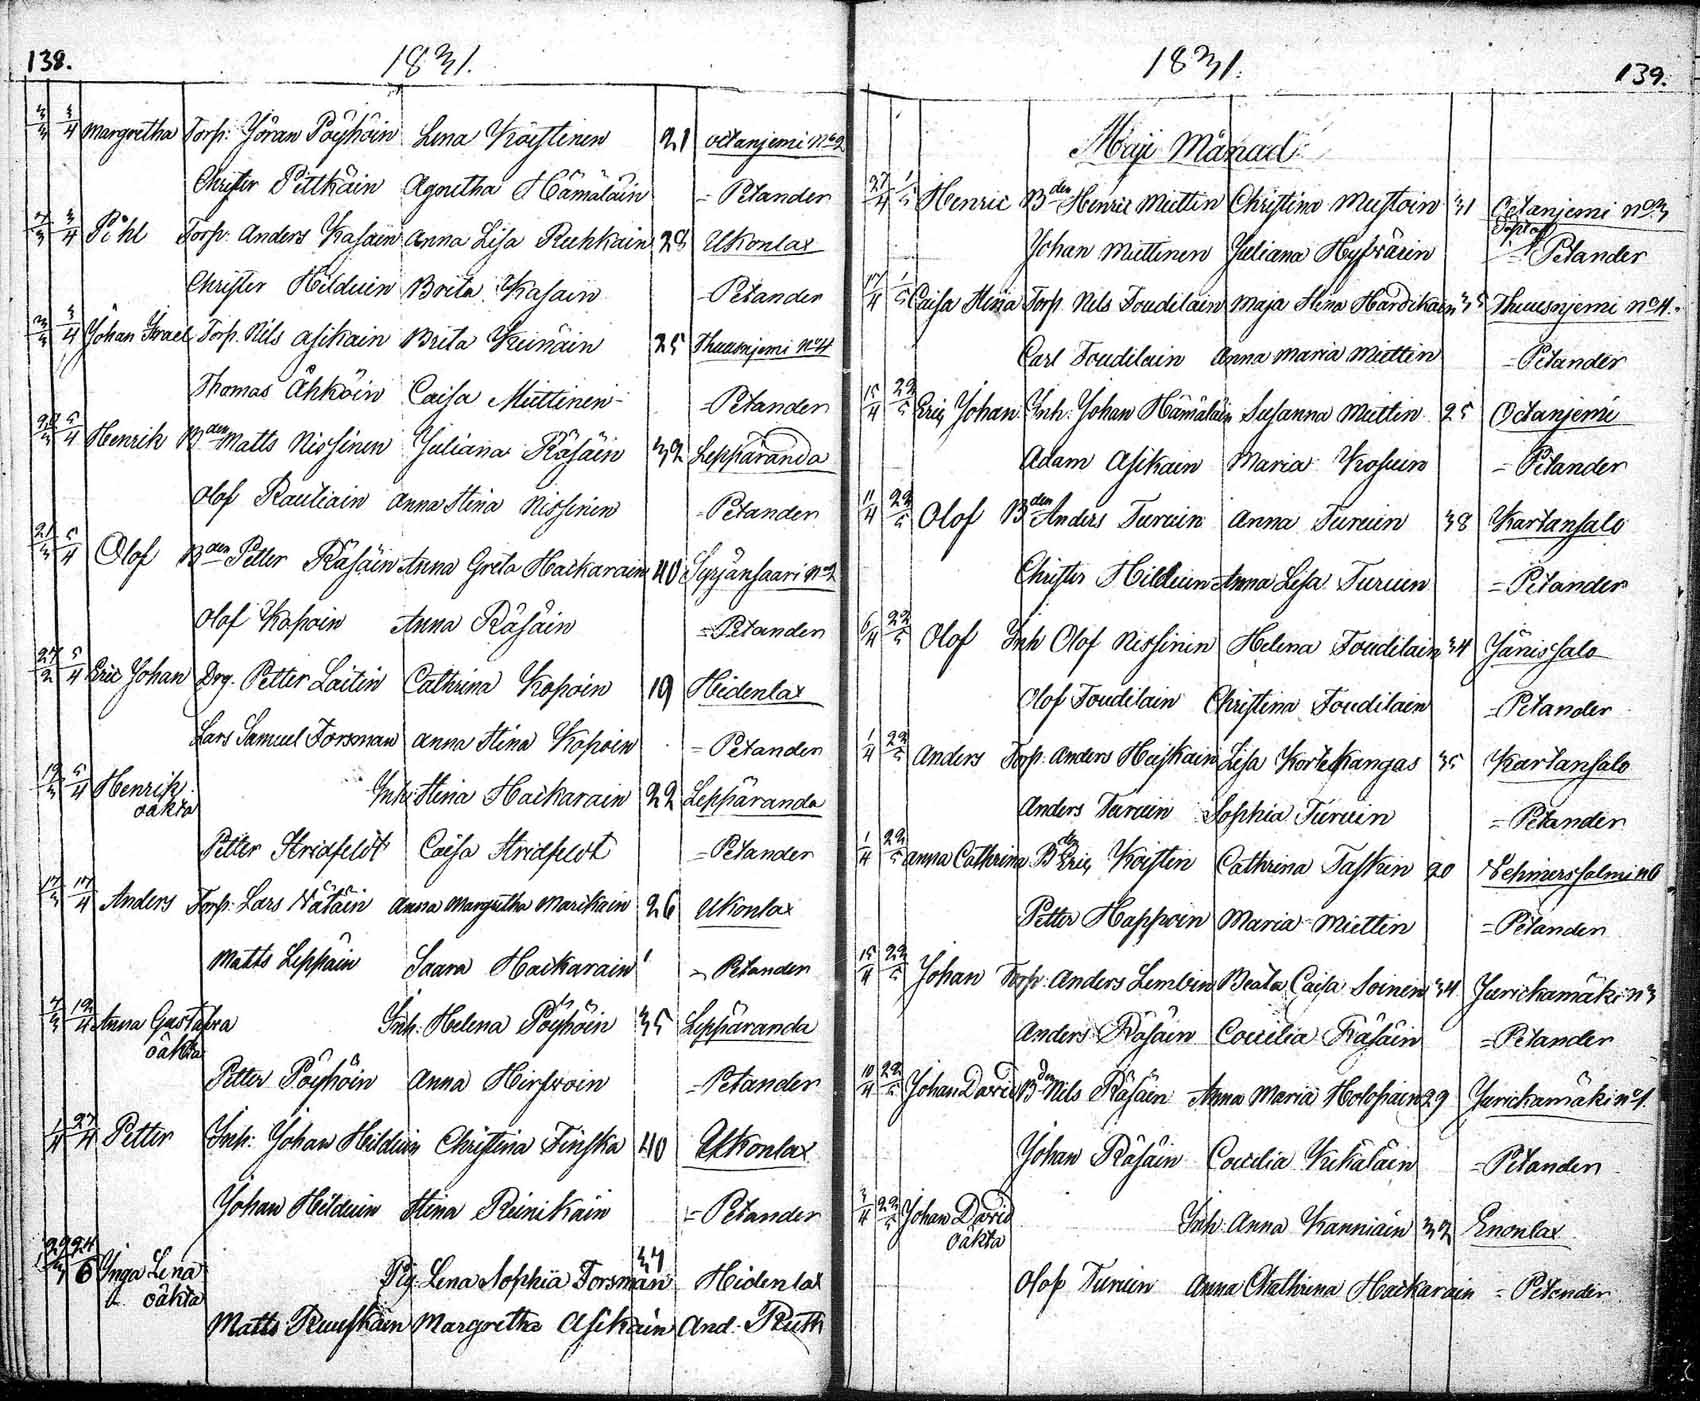 138.
1831.
3/3 3/4 Margretha Torp: Jöran Pöyhöin Lena Köistinen 21 Oitanjemi No 2
Christer Pitkäin Agnetha Hämäläin = Petander
7/3 3/4 Pehl Torp: Anders Kasain Anna Lisa Ruhkain 28 Ukonlax
Christer Hilduin Brita Kasain - Petander
3/4 Johan Israel Torp. Nils Asikain Brita Keinäin 25 Thuusnjemi No 4
Thomas Ähköin Caisa Miettinen - = Petander
5/4 Henrik Bden Matts Nissinen Juliana Räsäin 32 Lepparanda
Olof Rautiain Anna Stina Nissinen = Petander
21/3 5/4 Olof Bden Petter Räsäin Anna Greta Hackarain 40 Syrjänsaari No 2
Olof Kopoin Anna Räsäin = Petander
27/2 5/4 Eric Johan Drg. Petter Laitin Cathrina Kopoin 19 Heidenlax
Lars Samuel Forsman Anna Stina Kopoin = Petander
19/3 5/4 Henrik oäkta Inh: Stina Hackarain 22 Lepparanda
Petter Stridfeldt Caisa Stridfeldt = Petander
17/3 17/4 Anders Torp: Lars Wätäin Anna Margretha Marikain 26 Ukonlax
Matts Leppäin Saara Hackarain = Petander
7/3 19/4 Anna Gustafva oäkta Inh: Helena Pöyhöin 35 Lepparanda
Petter Pöyhöin Anna Hirfvoin = Petander
1/4 27/4 Petter Inh: Johan Hilduin Christina Finska 40 Ukonlax
Johan Hilduin Stina Reinikain = Petander
Inga Lena oäkta Pig. Lena Sophia Forsman 37 Heidenlax
Matts Ruuskain Margretha Asikain And. Ruth
1831.
139.
Maji Månad:
27/4 1/5 Henric Bden Henric Miettin Christina Mustoin 31 Oitanjemi No 3
Johan Miettinen Juliana Hyfväin = Petander
17/4 1/5 Caisa Stina Torp. Nils Toudilain Maja Stina Hardikain 35 Thuusnjemi No 4.
Carl Toudilain Anna Maria Miettin = Petander
15/4 22/5 Eriq Johan Inh: Johan Hämäläin Susanna Miettin 25 Oitanjemi
Adam Asikain Maria Kosuin = Petander
11/4 22/5 Olof Bden Anders Turuin Anna Turuin 38 Kartansalo
Christer Hilduin Anna Lisa Turuin = Petander
6/4 22/5 Olof Inh Olof Nissinin Helena Toudilain 34 Jänissalo
Olof Toudilain Christina Toudilain = Petander
1/4 22/5 Anders Torp. Anders Haskain Lisa Kortekangas 35 Kartansalo
Anders Turuin Sophia Turuin = Petander
1/4 22/5 Anna Cathrina Bden Eriq Köistin Cathrina Taskin 20 Wehmerssalmi n6
Petter Happoin Maria Miettin = Petander
15/4 22/5 Johan Torp: Anders Lembin Beata Caisa Soinen 34 Jurickamäki n3
Anders Räsäin Cecilia Räsäin = Petander
10/4 22/5 Johan David Bden Nils Räsäin Anna Maria Holopain 29 Jurickamäki no 1.
Johan Räsäin Cecilia Kekäläin = Petander
3/4 22/5 Johan David oäkta Inh: Anna Kanniain 32 Enonlax
Olof Turuin Anna Chathrina Hackarain = Petander